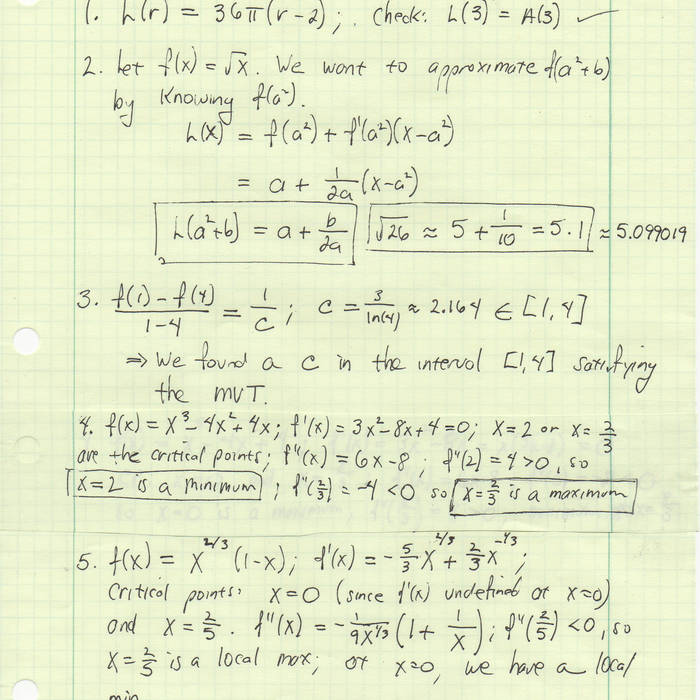 1. L(r) = 36π(r-2); . Check: L(3) = A(3) ✓
2. Let f(x) = √x. We want to approximate f(a²+b)
by knowing f(a²).
L(x) = f(a²) + f'(a²)(x-a²)
= a + 1/2a (x-a²)
L(a²+b) = a + b/2a √26 ≈ 5 + 1/10 = 5.1 ≈ 5.099019
3. f(1) - f(4)/1-4 = 1/c ; c = 3/ln(4) ≈ 2.164 ∈ [1,4]
⇒ We found a c in the interval [1,4] satisfying
the MVT.
4. f(x) = x³-4x²+4x; f'(x) = 3x²-8x+4=0; x=2 or x= 2/3
are the critical points; f"(x) = 6x-8 ; f"(2) = 4>0, so
x=2 is a minimum ; f"(2/3) = -4 <0 so x=2/3 is a maximum
5. f(x) = x^2/3 (1-x); f'(x) = -5/3 x^2/3 + 2/3 x^-1/3 ;
Critical points: x=0 (since f'(x) undefined at x=0)
and x= 2/5. f"(x) = -1/9x^4/3 (1+ 1/x) ; f"(2/5) <0, so
x=2/5 is a local max; at x=0, we have a local
min